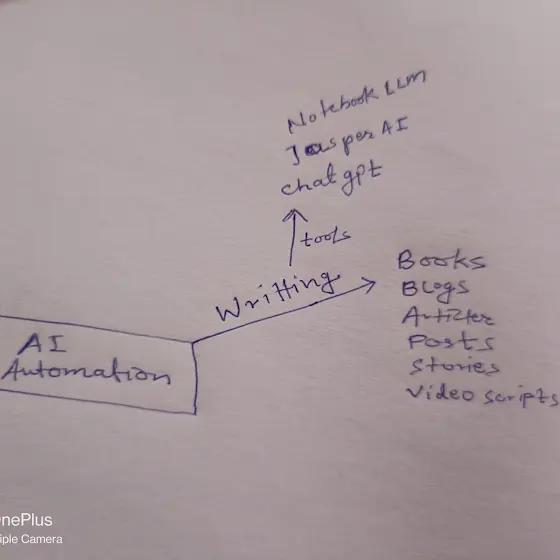 Notebook LLM
Jasper AI
chat gpt
tools
Writting
Books
Blogs
Articles
Posts
Stories
Video scripts
AI
Automation
OnePlus
iple Camera